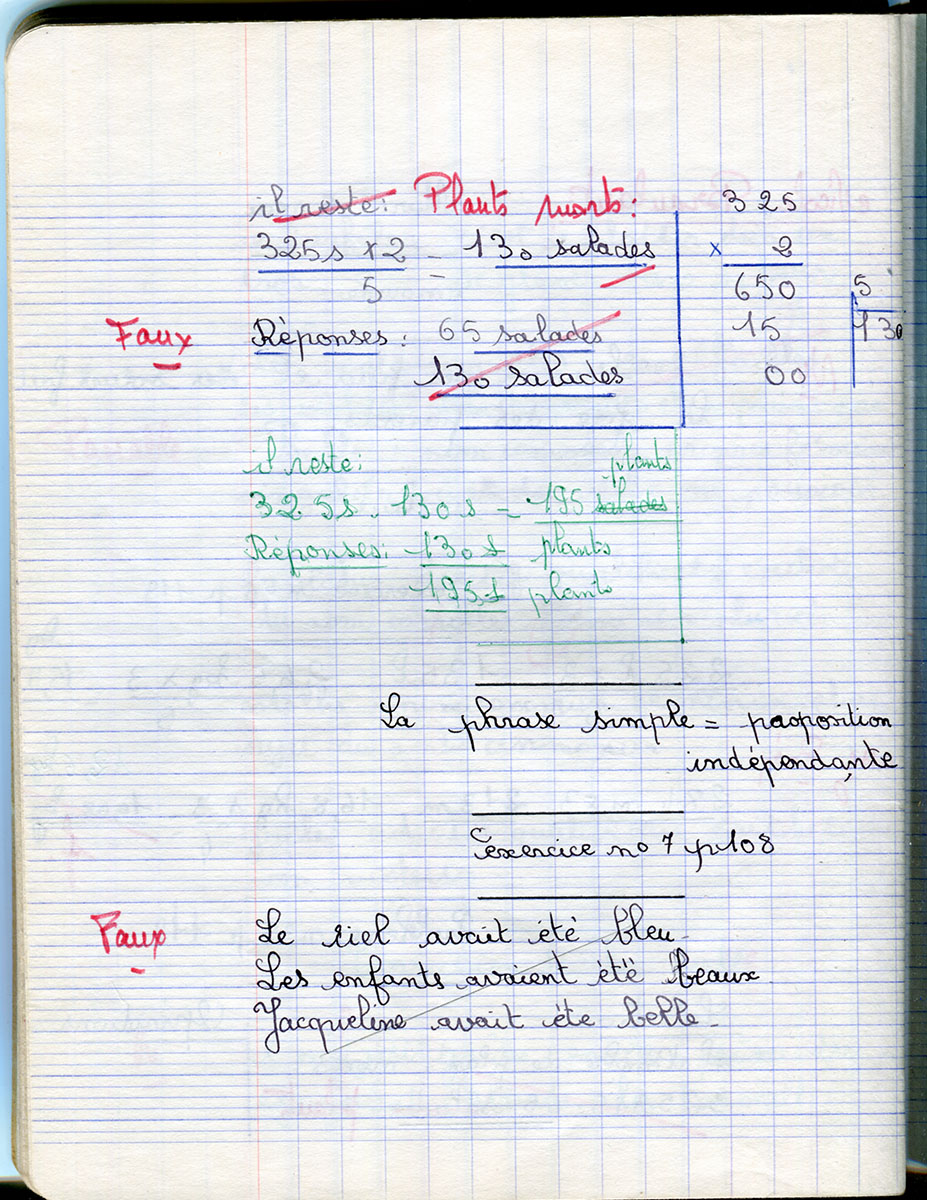 il reste: Plants morts:
325s x 2 = 130 salades
5
325
x 2
650 5
15 130
00
Faux Réponses: 65 salades
130 salades
il reste:
plants
325s - 130s = 195 salades
Réponses: 130s plants
195s plants
La phrase simple = proposition
indépendante
exercice no 7 p 108
Faux Le ciel avait été bleu
Les enfants avaient été beaux
Jacqueline avait éte belle